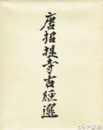 唐招提寺古經選